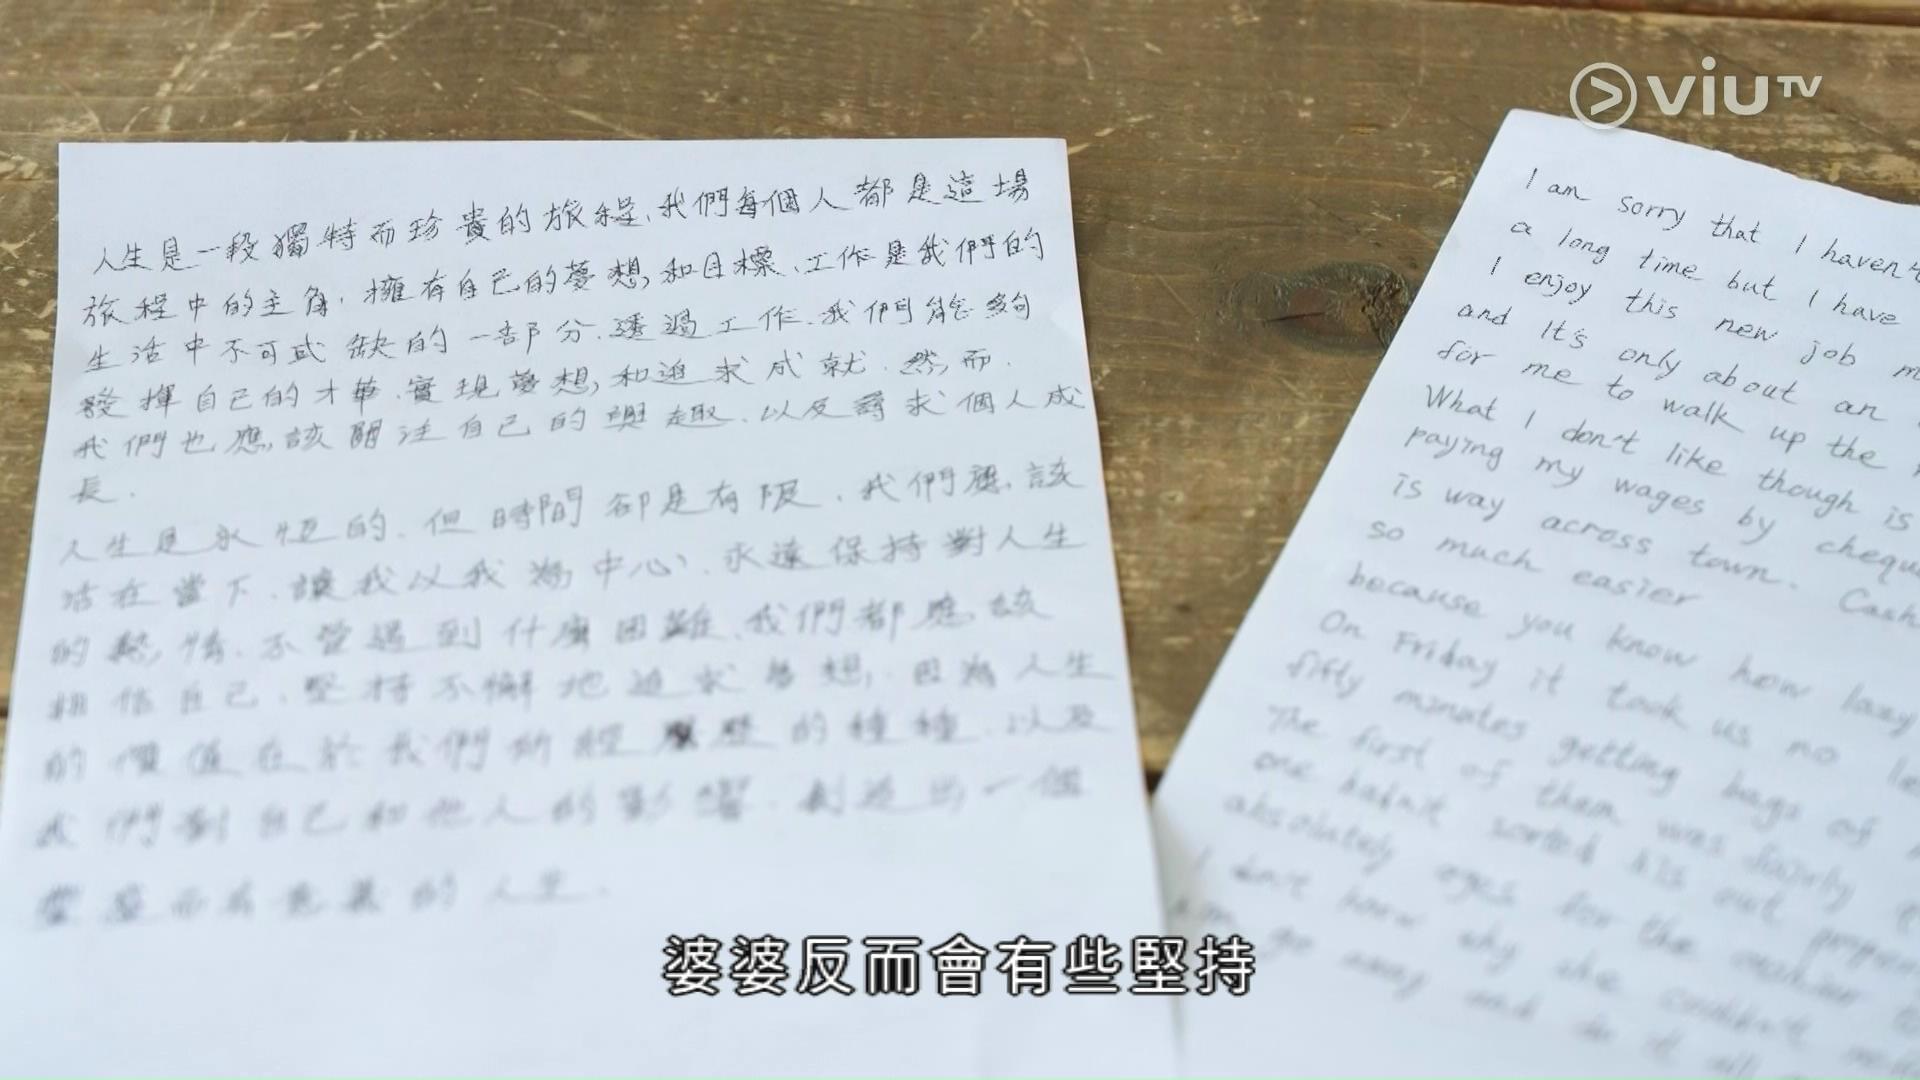 viuTV
人生是一段獨特而珍貴的旅程、我們每個人都是這場
旅程中的主角、擁有自己的夢想和目標、工作是我們的
生活中不可或缺的一部分、透過工作、我們能夠
發揮自己的才華、實現夢想和追求成就、然而、
我們也應該關注自己的興趣、以及尋求個人成
長、
人生是永恆的、但時間卻是有限、我們應該
活在當下、讓我以我為中心、永遠保持對人生
的熱情、不管遇到什麼困難、我們都應該
相信自己、堅持不懈地追求夢想、因為人生
的價值在於我們所經歷的種種、以及
我們對自己和他人的影響、創造出一個
豐盛而有意義的人生、
I am sorry that I haven't
a long time but I have
I enjoy this new job
and It's only about an
for me to walk up the
What I don't like though is
paying my wages by cheque
is way across town. Cash
so much easier
because you know how lazy
On Friday it took us no
fifty minutes getting bags of
The first of them was fairly
one hadn't sorted his out
absolutely ages for the
I don't know why she couldn't
go away and do it all
婆婆反而會有些堅持